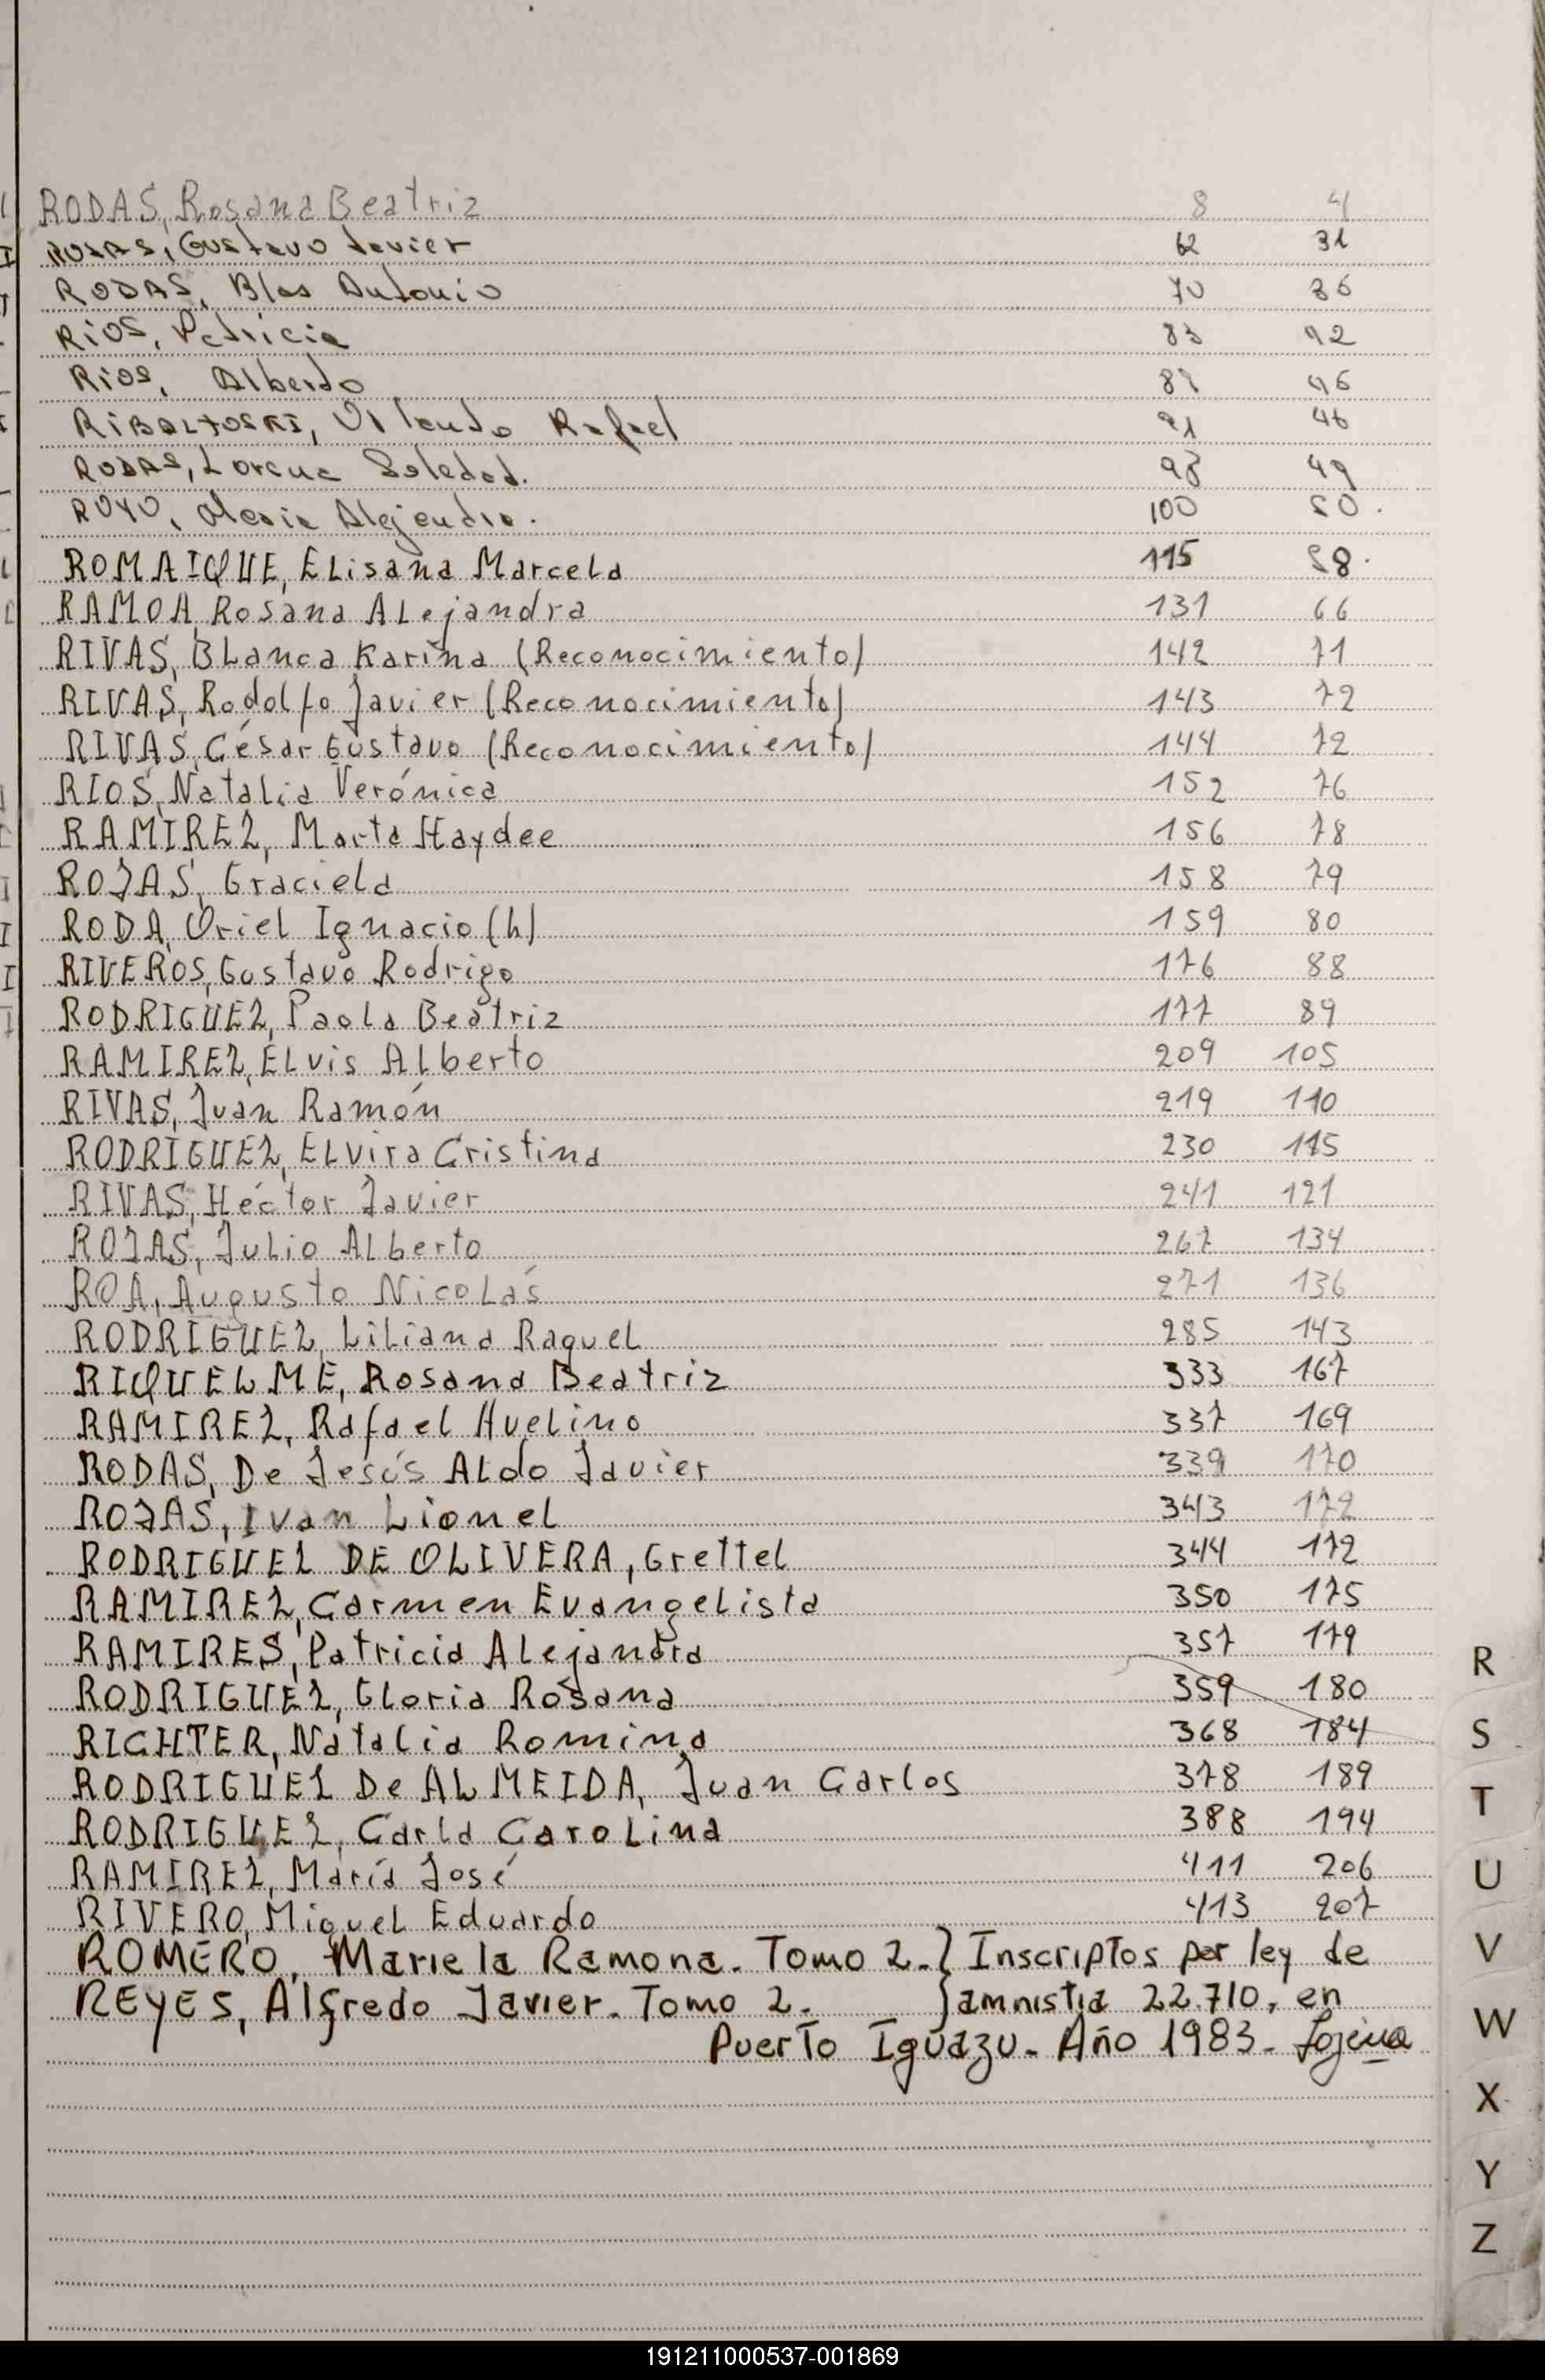 RODAS, Rosana Beatriz 8 4
ROJAS, Gustavo Javier 62 31
RODAS, Blas Antonio 70 36
RIOS, Patricia 83 42
RIOS, Alberto 46
Rafael 91 46
RODAS, Lorena Soledad. 98 49
ROYO, Maria Alejandra. 100 50.
ROMAIQUE, Elisana Marcela 115 58.
RAMOA, Rosana Alejandra 131 66
RIVAS, Blanca Karina (Reconocimiento) 142 71
RIVAS, Rodolfo Javier (Reconocimiento) 143 72
RIVAS, César Gustavo (Reconocimiento) 144 72
RIOS, Natalia Verónica 152 76
RAMIREZ, Marta Haydee 156 78
ROJAS, Graciela 158 79
RODA, Oriel Ignacio (h) 159 80
RIVEROS, Gustavo Rodrigo 176 88
RODRIGUEZ, Paola Beatriz 177 89
RAMIREZ, Elvis Alberto 209 105
RIVAS, Juan Ramón 219 110
RODRIGUEZ, Elvira Cristina 230 115
RIVAS, Héctor Javier 241 121
ROJAS, Julio Alberto 267 134
ROA, Augusto Nicolás 271 136
RODRIGUEZ, Liliana Raquel 285 143
RIQUELME, Rosana Beatriz 333 167
RAMIREZ, Rafael Avelino 337 169
RODAS, De Jesús Aldo Javier 339 170
ROJAS, Ivan Lionel 343 172
RODRIGUEZ DE OLIVERA, Grettel 344 172
RAMIREZ, Carmen Evangelista 350 175
RAMIRES, Patricia Alejandra 357 179
RODRIGUEZ, Gloria Rosana 359 180
RICHTER, Natalia Romina 368 184
RODRIGUEZ De ALMEIDA, Juan Carlos 378 189
RODRIGUEZ, Carla Carolina 388 194
RAMIREZ, María José 411 206
RIVERO, Miguel Eduardo 413 207
ROMERO, Mariela Ramona. Tomo 2. } Inscriptos por ley de
REYES, Alfredo Javier. Tomo 2. } amnistia 22.710, en
Puerto Iguazu. Año 1983.
R
S
T
U
V
W
X
Y
Z
191211000537-001869